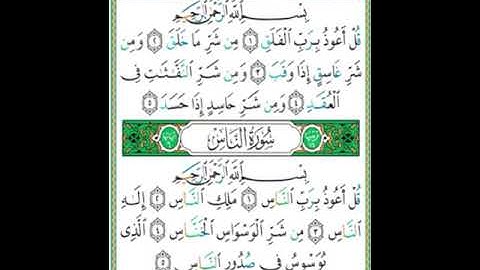 بِسْمِ ٱللَّهِ ٱلرَّحْمَٰنِ ٱلرَّحِيمِ
قُلْ أَعُوذُ بِرَبِّ ٱلْفَلَقِ ١ مِن شَرِّ مَا خَلَقَ ٢ وَمِن
شَرِّ غَاسِقٍ إِذَا وَقَبَ ٣ وَمِن شَرِّ ٱلنَّفَّٰثَٰتِ فِى
ٱلْعُقَدِ ٤ وَمِن شَرِّ حَاسِدٍ إِذَا حَسَدَ ٥
سُورَةُ ٱلنَّاسِ
بِسْمِ ٱللَّهِ ٱلرَّحْمَٰنِ ٱلرَّحِيمِ
قُلْ أَعُوذُ بِرَبِّ ٱلنَّاسِ ١ مَلِكِ ٱلنَّاسِ ٢ إِلَٰهِ
ٱلنَّاسِ ٣ مِن شَرِّ ٱلْوَسْوَاسِ ٱلْخَنَّاسِ ٤ ٱلَّذِى
يُوَسْوِسُ فِى صُدُورِ ٱلنَّاسِ ٥